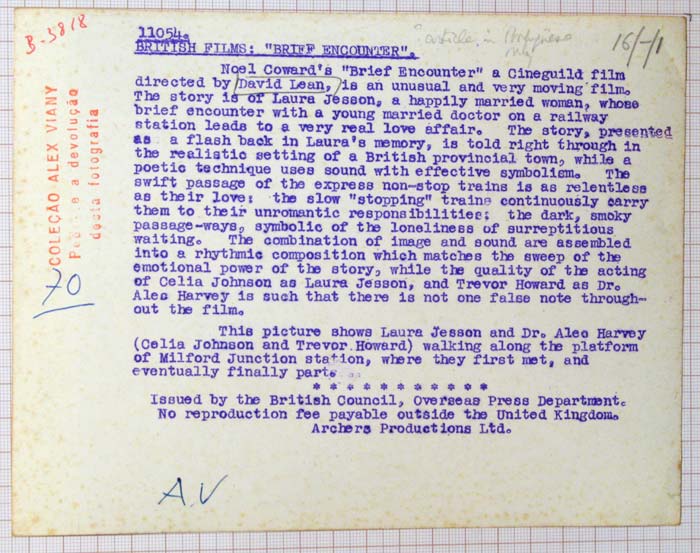 B-3818
11054.
BRITISH FILMS: "BRIEF ENCOUNTER".
article in Portuguese
16/-/1
Noel Coward's "Brief Encounter" a Cineguild film
directed by David Lean, is an unusual and very moving film.
The story is of Laura Jesson, a happily married woman, whose
brief encounter with a young married doctor on a railway
station leads to a very real love affair. The story, presented
as a flash back in Laura's memory, is told right through in
the realistic setting of a British provincial town, while a
poetic technique uses sound with effective symbolism. The
swift passage of the express non-stop trains is as relentless
as their love; the slow "stopping" trains continuously carry
them to their unromantic responsibilities; the dark, smoky
passage-ways, symbolic of the loneliness of surreptitious
waiting. The combination of image and sound are assembled
into a rhythmic composition which matches the sweep of the
emotional power of the story, while the quality of the acting
of Celia Johnson as Laura Jesson, and Trevor Howard as Dr.
Alec Harvey is such that there is not one false note through-
out the film.
This picture shows Laura Jesson and Dr. Alec Harvey
(Celia Johnson and Trevor Howard) walking along the platform
of Milford Junction station, where they first met, and
eventually finally part.
* * * * * * * * * * * *
Issued by the British Council, Overseas Press Department.
No reproduction fee payable outside the United Kingdom.
Archers Productions Ltd.
COLEÇÃO ALEX VIANY
Pede-se a devolução
desta fotografia
70
A.V